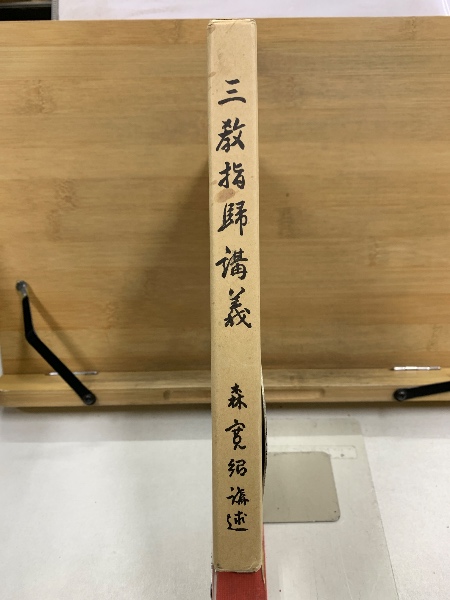 三教指歸講義
森寛紹講述